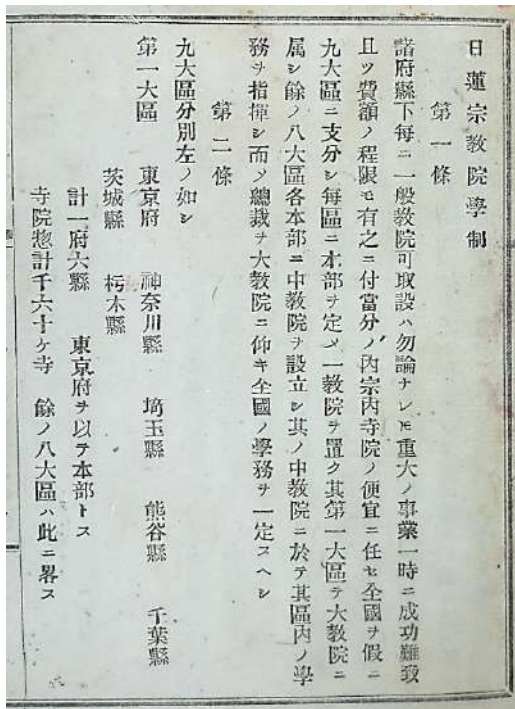 日蓮宗教院學制
第一條
諸府縣下每ニ一般教院可取設ハ勿論ナレ𪜈重大ノ事業一時ニ成功難致
且ツ費額ノ程限モ有之ニ付當分ノ內宗內寺院ノ便宜ニ任セ全國ヲ假ニ
九大區ニ支分シ每區ニ本部ヲ定メ一教院ヲ置ク其第一大區ヲ大教院ニ
属シ餘ノ八大區各本部ニ中教院ヲ設立シ其ノ中教院ニ於テ其區內ノ學
務ヲ指揮シ而〆總裁ヲ大教院ニ仰キ全國ノ學務ヲ一定スヘシ
第二條
九大區分別左ノ如シ
第一大區 東京府 神奈川縣 埼玉縣 熊谷縣 千葉縣
茨城縣 栃木縣
計一府六縣 東京府ヲ以テ本部トス
寺院惣計千六十ケ寺 餘ノ八大區ハ此ニ畧ス